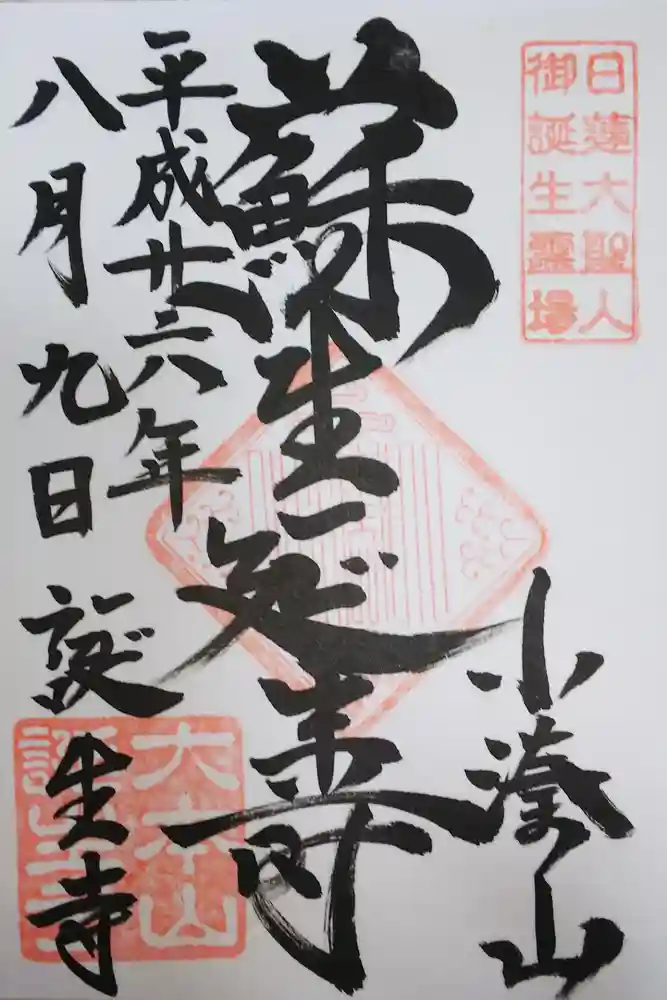 日蓮大聖人
御誕生霊場
小湊山
蘇生延寿
平成廿六年
八月九日
誕生寺
大本山
誕生寺